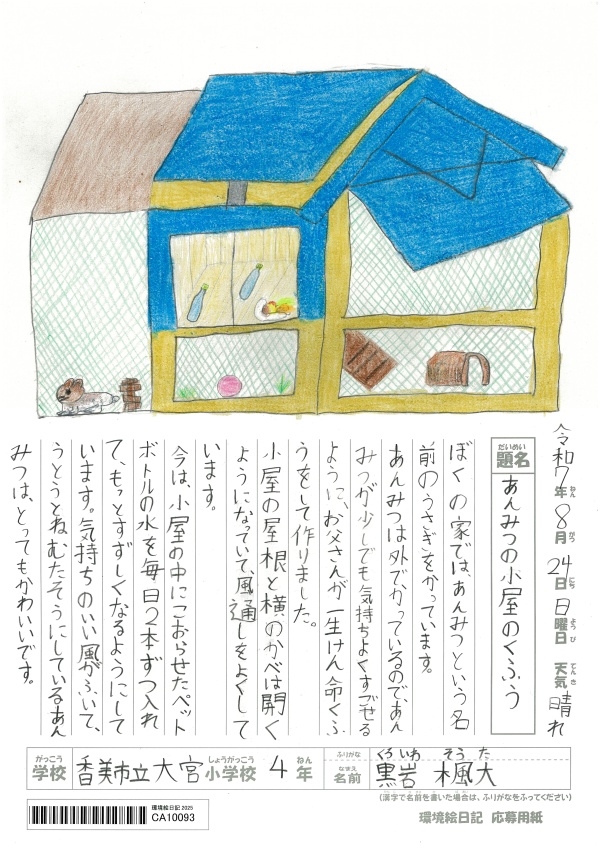 令和7年8月24日日曜日 天気晴れ
ねん がつ にち ようび てんき
だいめい
題名
あんみつの小屋のくふう
ぼくの家では、あんみつという名
前のうさぎをかっています。
あんみつは外でかっているので、あん
みつが少しでも気持ちよくすごせる
ように、お父さんが一生けん命くふ
うをして作りました。
小屋の屋根と横のかべは開く
ようになっていて、風通しをよくして
います。
今は、小屋の中にこおらせたペット
ボトルの水を毎日2本ずつ入れ
て、もっとすずしくなるようにして
います。気持ちのいい風がふいて、
うとうとねむたそうにしているあん
みつは、とってもかわいいです。
がっこう しょうがっこう ねん
学校 香美市立大宮小学校 4年
ふりがな くろいわ そうた
なまえ
名前 黒岩 楓大
(漢字で名前を書いた場合は、ふりがなをふってください)
環境絵日記 2025
CA10093
環境絵日記 応募用紙